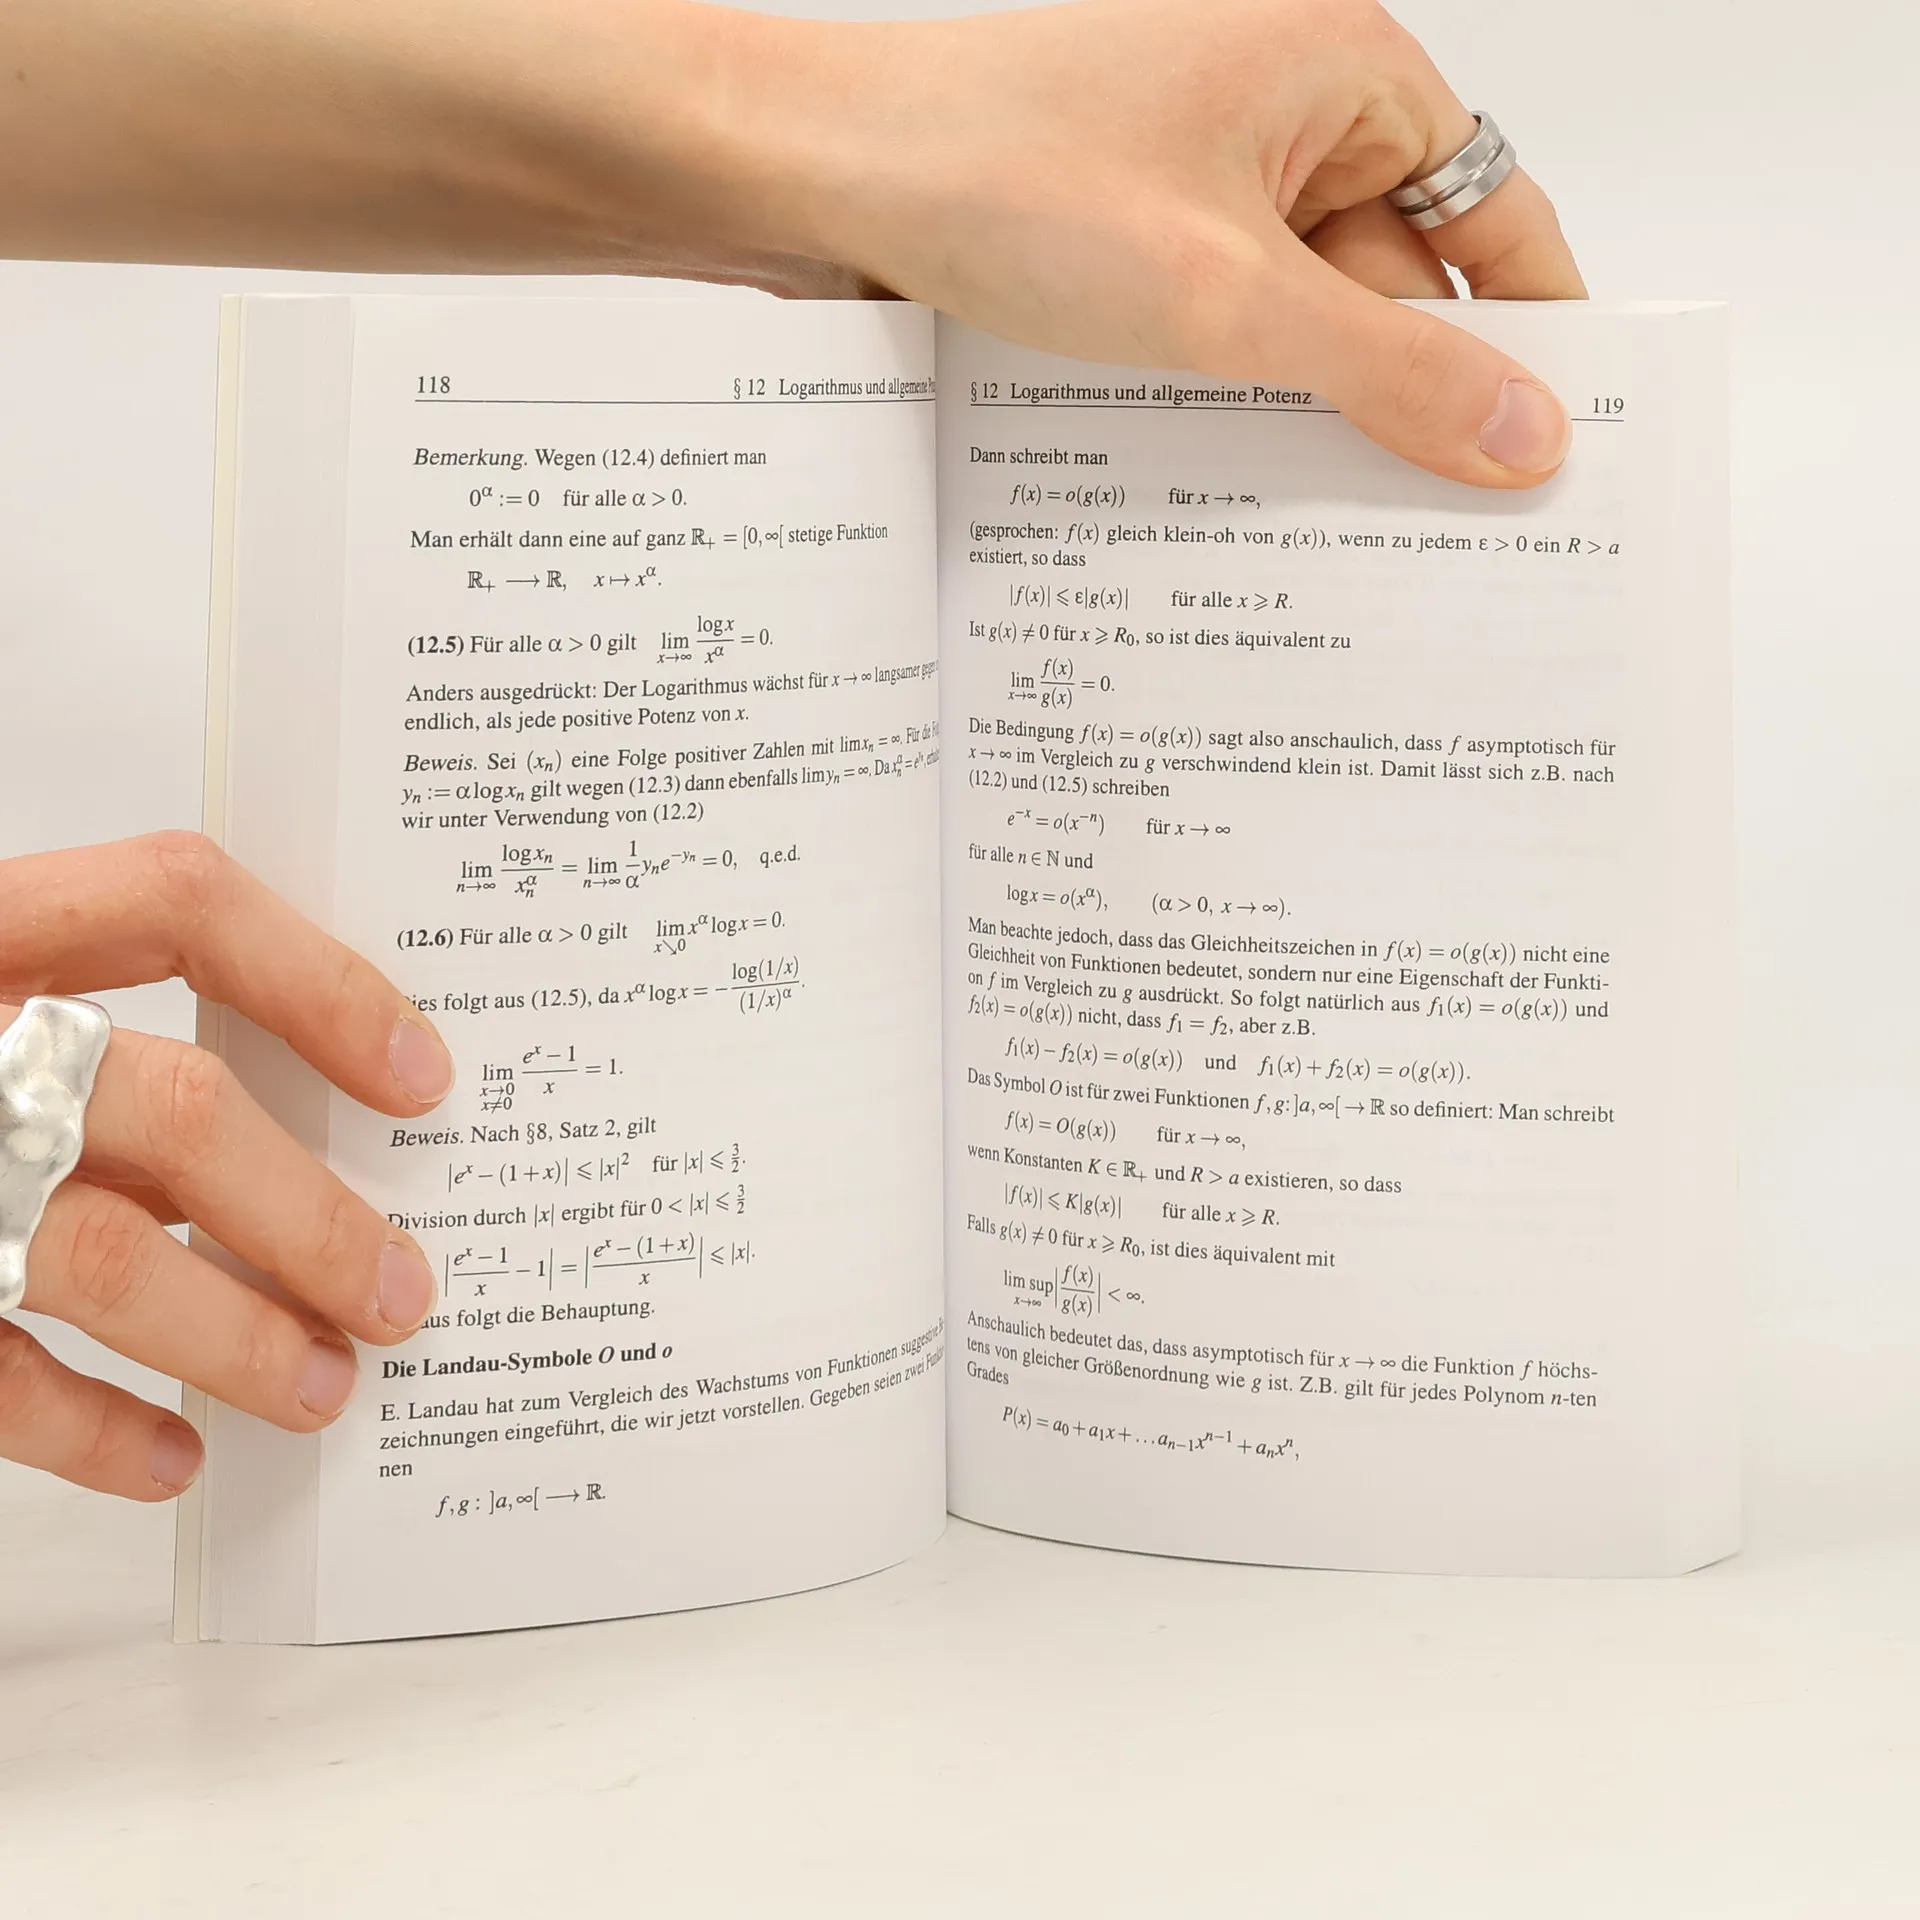 118 § 12 Logarithmus und allgemeine
Bemerkung. Wegen (12.4) definiert man
0^α := 0 für alle α > 0.
Man erhält dann eine auf ganz ℝ₊ = [0,∞[ stetige Funktion
ℝ₊ ⟶ ℝ, x ↦ x^α.
(12.5) Für alle α > 0 gilt lim_{x→∞} log x / x^α = 0.
Anders ausgedrückt: Der Logarithmus wächst für x → ∞ langsamer
endlich, als jede positive Potenz von x.
Beweis. Sei (x_n) eine Folge positiver Zahlen mit lim x_n = ∞. Für die
y_n := α log x_n gilt wegen (12.3) dann ebenfalls lim y_n = ∞. Da x_n^α = e^{y_n},
wir unter Verwendung von (12.2)
lim_{n→∞} log x_n / x_n^α = lim_{n→∞} 1/α y_n e^{−y_n} = 0, q.e.d.
(12.6) Für alle α > 0 gilt lim_{x↘0} x^α log x = 0.
ies folgt aus (12.5), da x^α log x = − log(1/x) / (1/x)^α.
lim_{x→0, x≠0} (e^x − 1) / x = 1.
Beweis. Nach §8, Satz 2, gilt
|e^x − (1+x)| ⩽ |x|² für |x| ⩽ 3/2.
Division durch |x| ergibt für 0 < |x| ⩽ 3/2
|(e^x − 1)/x − 1| = |(e^x − (1+x))/x| ⩽ |x|.
aus folgt die Behauptung.
Die Landau-Symbole O und o
E. Landau hat zum Vergleich des Wachstums von Funktionen suggestive
zeichnungen eingeführt, die wir jetzt vorstellen. Gegeben seien zwei
nen
f,g : ]a,∞[ ⟶ ℝ.
§ 12 Logarithmus und allgemeine Potenz 119
Dann schreibt man
f(x) = o(g(x)) für x → ∞,
(gesprochen: f(x) gleich klein-oh von g(x)), wenn zu jedem ε > 0 ein R > a
existiert, so dass
|f(x)| ⩽ ε|g(x)| für alle x ⩾ R.
Ist g(x) ≠ 0 für x ⩾ R₀, so ist dies äquivalent zu
lim_{x→∞} f(x)/g(x) = 0.
Die Bedingung f(x) = o(g(x)) sagt also anschaulich, dass f asymptotisch für
x → ∞ im Vergleich zu g verschwindend klein ist. Damit lässt sich z.B. nach
(12.2) und (12.5) schreiben
e^{−x} = o(x^{−n}) für x → ∞
für alle n ∈ ℕ und
log x = o(x^α), (α > 0, x → ∞).
Man beachte jedoch, dass das Gleichheitszeichen in f(x) = o(g(x)) nicht eine
Gleichheit von Funktionen bedeutet, sondern nur eine Eigenschaft der Funkti-
on f im Vergleich zu g ausdrückt. So folgt natürlich aus f₁(x) = o(g(x)) und
f₂(x) = o(g(x)) nicht, dass f₁ = f₂, aber z.B.
f₁(x) − f₂(x) = o(g(x)) und f₁(x) + f₂(x) = o(g(x)).
Das Symbol O ist für zwei Funktionen f,g: ]a,∞[ → ℝ so definiert: Man schreibt
f(x) = O(g(x)) für x → ∞,
wenn Konstanten K ∈ ℝ₊ und R > a existieren, so dass
|f(x)| ⩽ K|g(x)| für alle x ⩾ R.
Falls g(x) ≠ 0 für x ⩾ R₀, ist dies äquivalent mit
lim sup_{x→∞} |f(x)/g(x)| < ∞.
Anschaulich bedeutet das, dass asymptotisch für x → ∞ die Funktion f höchs-
tens von gleicher Größenordnung wie g ist. Z.B. gilt für jedes Polynom n-ten
Grades
P(x) = a₀ + a₁x + … a_{n−1}x^{n−1} + a_n x^n,